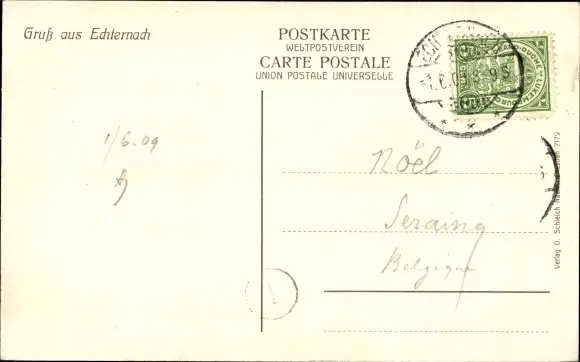 Gruß aus Echternach
POSTKARTE
WELTPOSTVEREIN
CARTE POSTALE
UNION POSTALE UNIVERSELLE
1/6.09
Noël
Seraing
Belgique
GRAND-DUCHÉ
LUXEMBOURG
5
5
8-9S
1
Verlag O. Schleich
7179